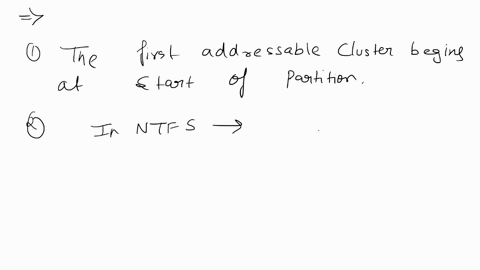 ⇒
① The first addressable Cluster begins
at Start of Partition.
② In NTFS →